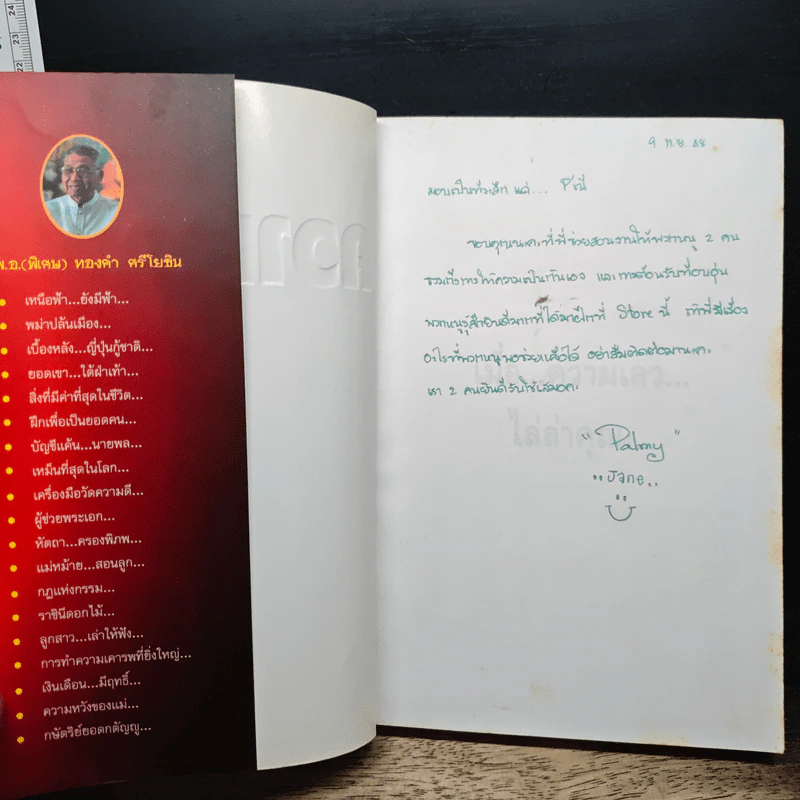 24
23
22
พ.อ.(พิเศษ) ทองคำ ศรีโยธิน
เหนือฟ้า...ยังมีฟ้า...
พม่าปล้นเมือง...
เบื้องหลัง...ญี่ปุ่นกู้ชาติ...
ยอดเขา...ใต้ฝ่าเท้า...
สิ่งที่มีค่าที่สุดในชีวิต...
ฝึกเพื่อเป็นยอดคน...
บัญชีแค้น...นายพล...
เหม็นที่สุดในโลก...
เครื่องมือวัดความดี...
ผู้ช่วยพระเอก...
หัตถา...ครองพิภพ...
แม่หม้าย...สอนลูก...
กฎแห่งกรรม...
ราชินีดอกไม้...
ลูกสาว...เล่าให้ฟัง...
การทำความเคารพที่ยิ่งใหญ่...
เงินเดือน...มีฤทธิ์...
ความหวังของแม่...
กษัตริย์ยอดกตัญญู...
9 ก.ย. 48
มอบเป็นที่ระลึก แด่...
ขอบคุณนะคะที่พี่ช่วยสอนงานให้พวกหนู 2 คน
รวมถึงการให้ความเป็นกันเอง และการต้อนรับที่อบอุ่น
พวกหนูรู้สึกยินดีมากที่ได้มาฝึกที่ Store นี้ ถ้าพี่มีเรื่อง
อะไรที่พวกหนูพอช่วยเหลือได้ อย่าลืมติดต่อมานะคะ
เรา 2 คนยินดีรับใช้เสมอค่ะ
"Palmy"
..Jane..
เมื่อ...ความเลว...
ไล่ล่าคุณ